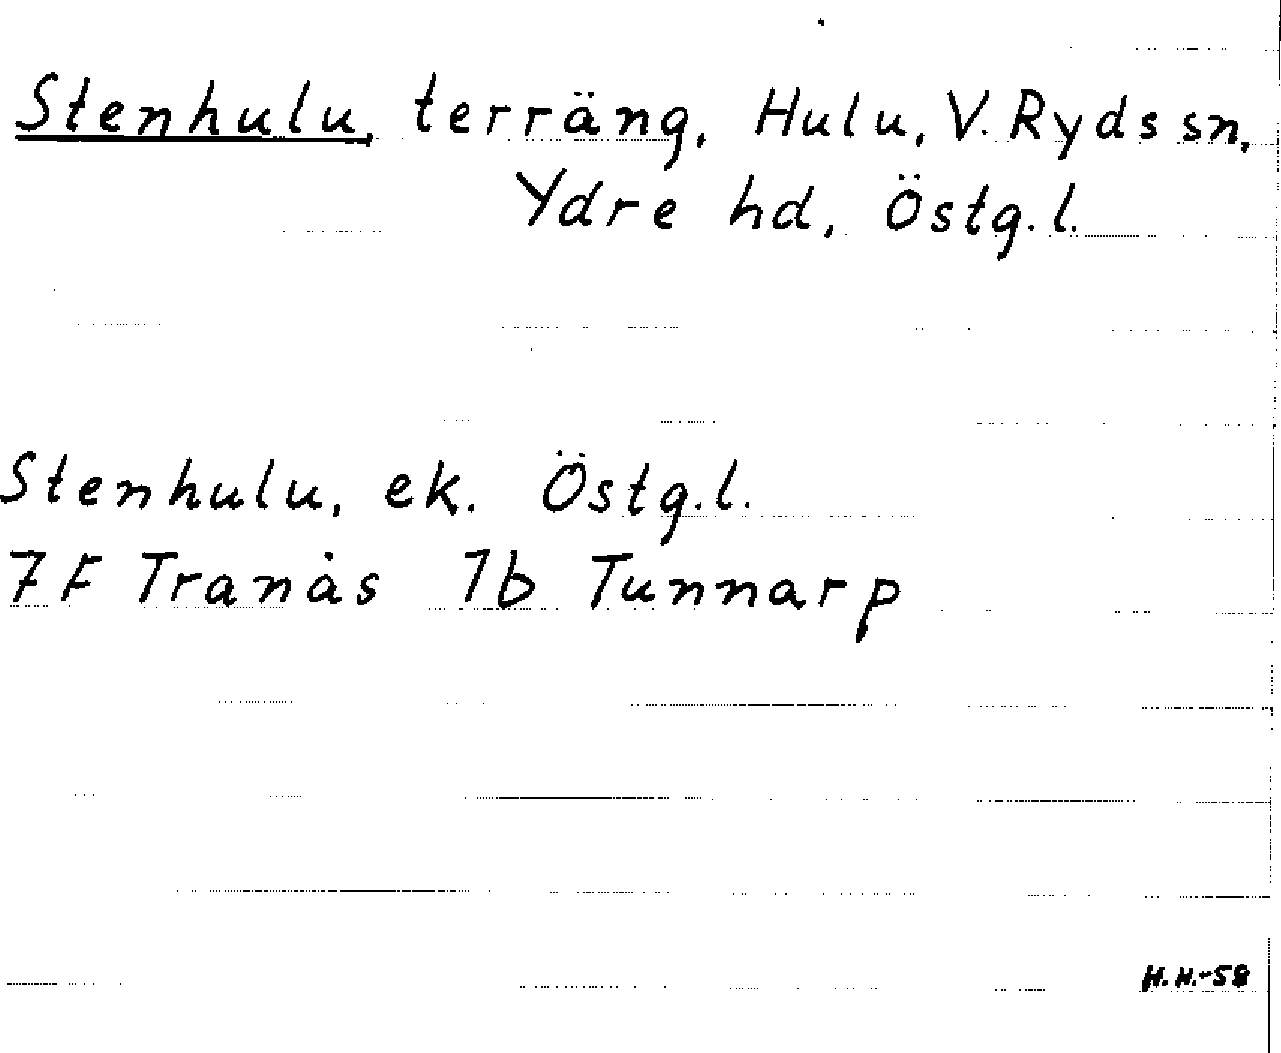 Stenhulu, terräng, Hulu, V. Ryds sn,
Ydre hd, Östg. l.
Stenhulu, ek. Östg. l.
7F Tranås 7b Tunnarp
H.H.-58